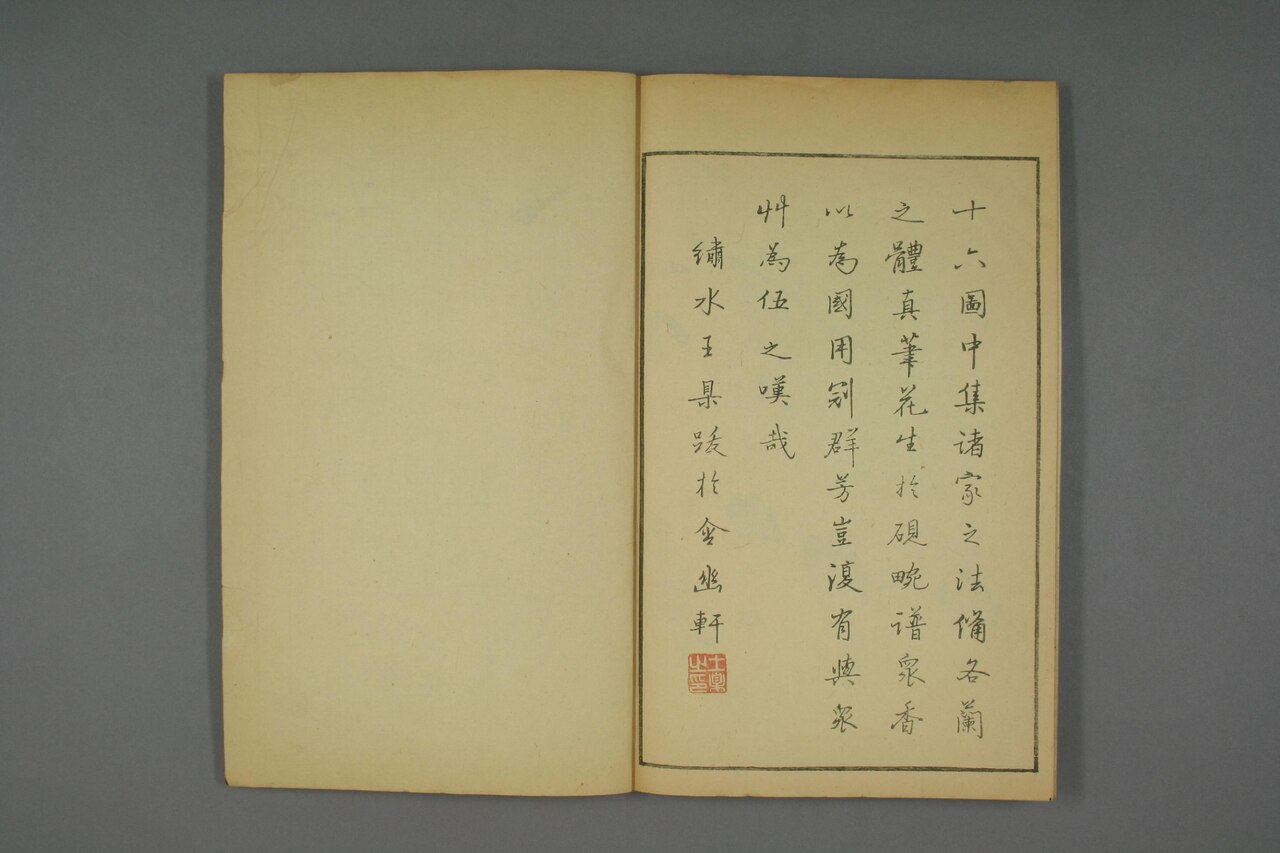 十六圖中集諸家之法備各蘭
之體真筆花生於硯畹譜衆香
以為國用別群芳豈復有與衆
艸為伍之嘆哉
繡水王臬跋於含幽軒
王臬之印